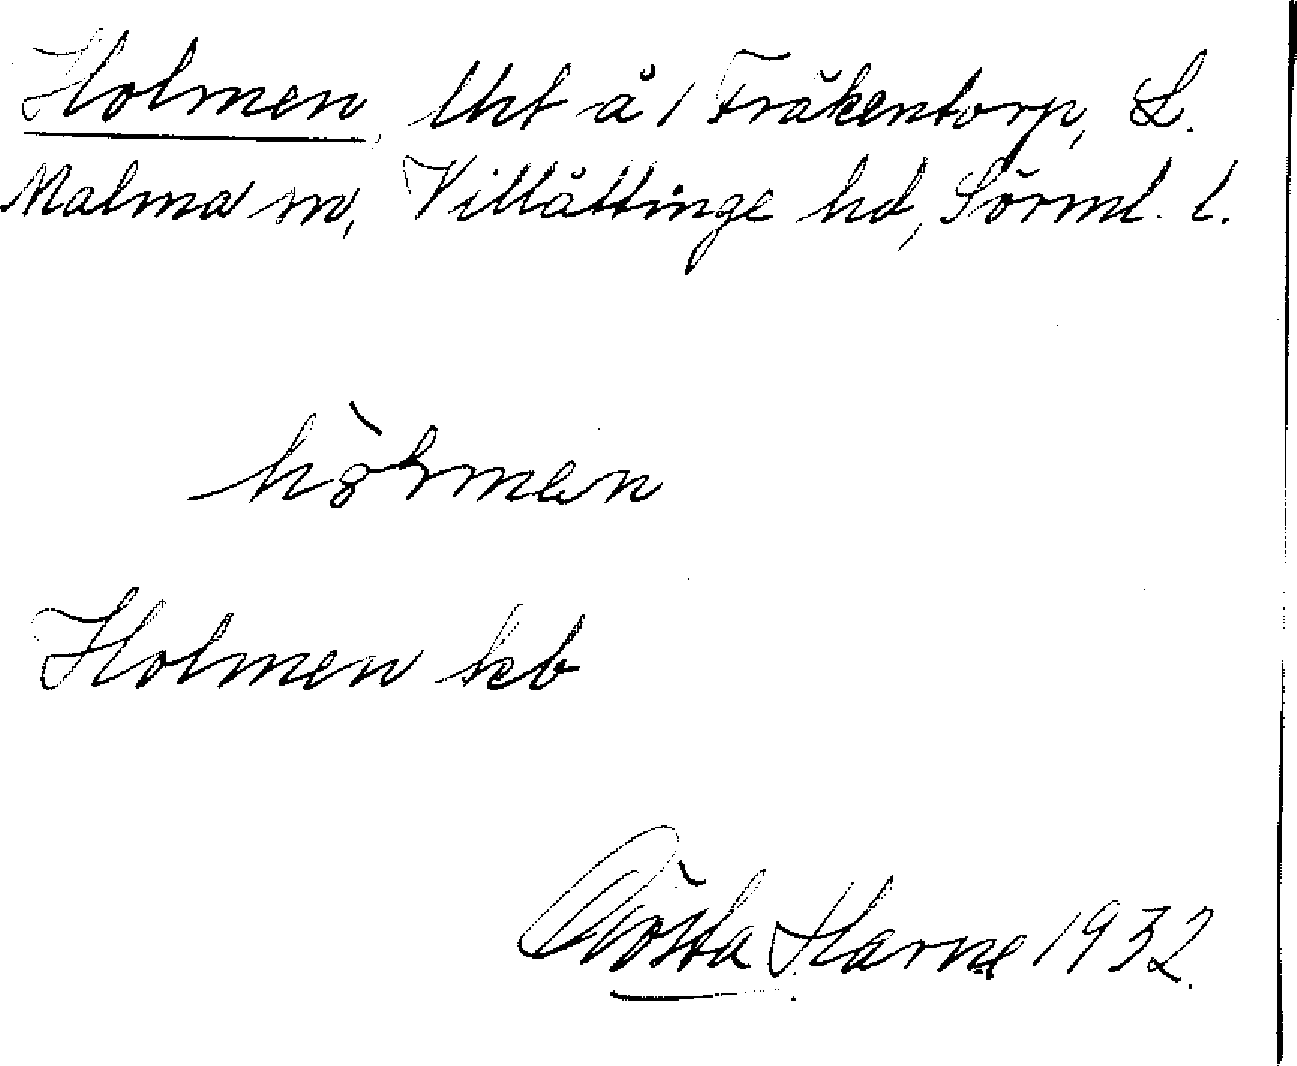 Holmen, lht å 1 Fräkentorp, L.
Malma sn, Villåttinge hd, Sörml. l.
hòlmen
Holmen kb
Gösta Harne 1932.